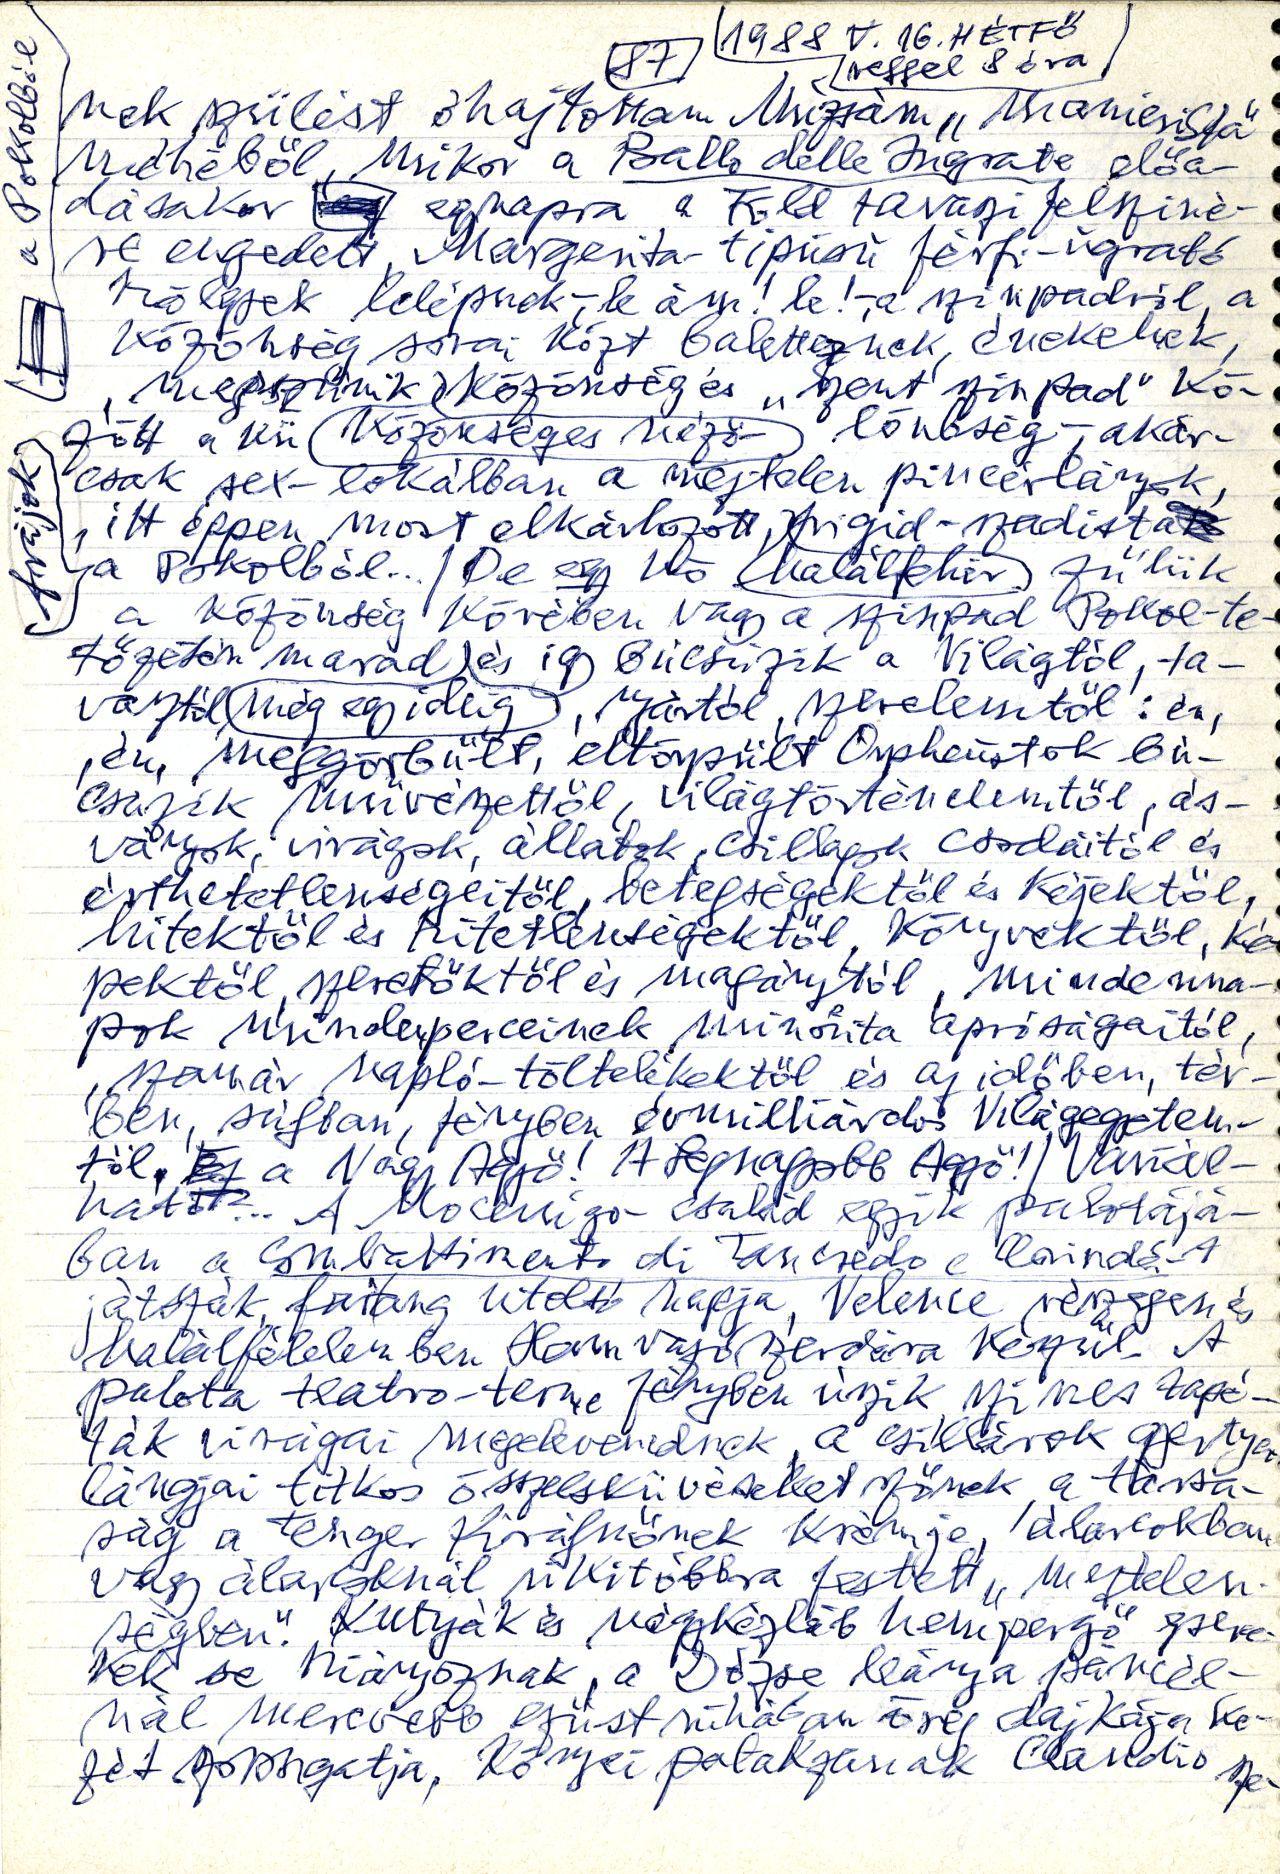 87
1988 V. 16. HÉTFŐ
reggel 8 óra
a Pokolból
furiájok
nek szülést óhajtottam Múzsám „Manierista"
méhéből, mikor a Ballo delle Ingrate előa-
dásakor egy napra a Föld tavaszi felszíné-
re engedett, Margerita-típusú férfi-ugrató
hölgyek lelépnek,-le ám! le!-, a színpadról, a
közönség sorai közt baletteznek, énekelnek,
megszűnik közönség és „szent színpad" kö-
zött a közönséges néző- lönbség-, akár-
csak sex-lokálban a meztelen pincérlányok,
itt éppen most elkárhozott, frigid-szadista
a Pokolból... / De egy nő halálfehér
a közönség körében vagy a színpad Pokol-te-
tőzetén marad és így búcsúzik a Világtól, ta-
vasztól még egy ideig, nyártól, szerelemtől: én,
én, meggörbült, eltörpült Orpheustok bú-
csúzik művészettől, világtörténelemtől, ás-
ványok, virágok, állatok, csillagok csodáitól és
érthetetlenségeitől, betegségektől és kéjektől,
hitektől és hitetlenségektől, könyvektől, ké-
pektől, szeretőktől és magánytól, mindenna-
pok mindenperceinek minorita apróságaitól,
szamár napló-töltelékektől és az időben, tér-
ben, súlyban, fényben évmilliárdos Világegyetem-
től. a Nagy Agyő! A legnagyobb Agyő! / Variál-
ható... A Mocenigo-család egyik palotájá-
ban a Combattimento di Tancredo e Clorindá-t
játsszák, farsang utolsó napja, Velence részegen és
halálfélelemben Hamvazó szerdára készül. A
palota teatro-terme fényben úszik, színes tapé-
ták virágai megelevenednek, a csillárok gyertya-
lángjai titkos összeesküvéseket szőnek, a társa-
ság a tenger Királynőnek krémje, álarcokban
vagy álarcoknál rikítóbbra festett „meztelen-
ségben". Kutyák és négykézláb hempergő gyere-
kek se hiányoznak, a Dózse leánya páncél-
nál merevebb ezüst ruhában öreg dajkája ke-
zét szorongatja, könnyei patakzanak Claudio sze-